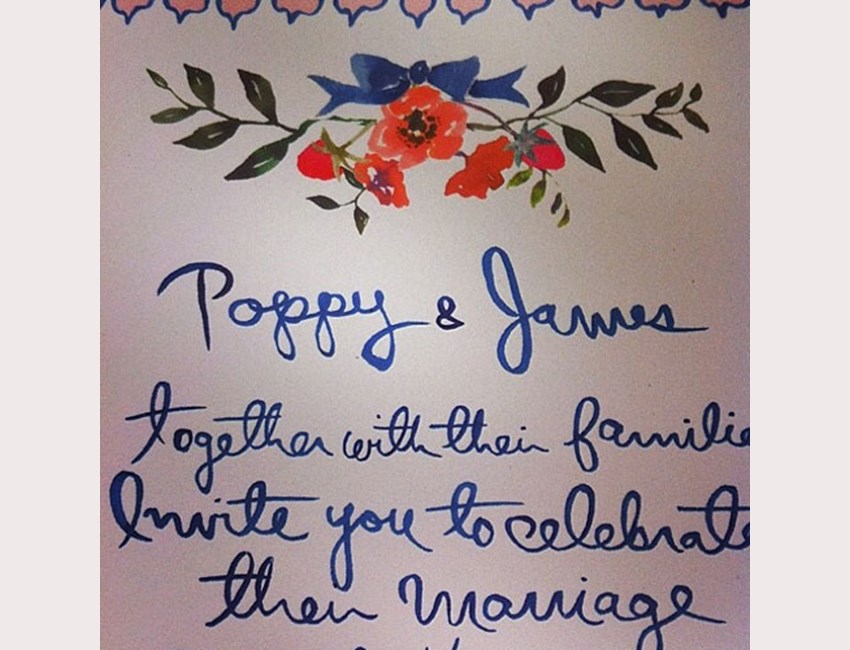 Poppy & James
together with their familie
Invite you to celebrate
their Marriage